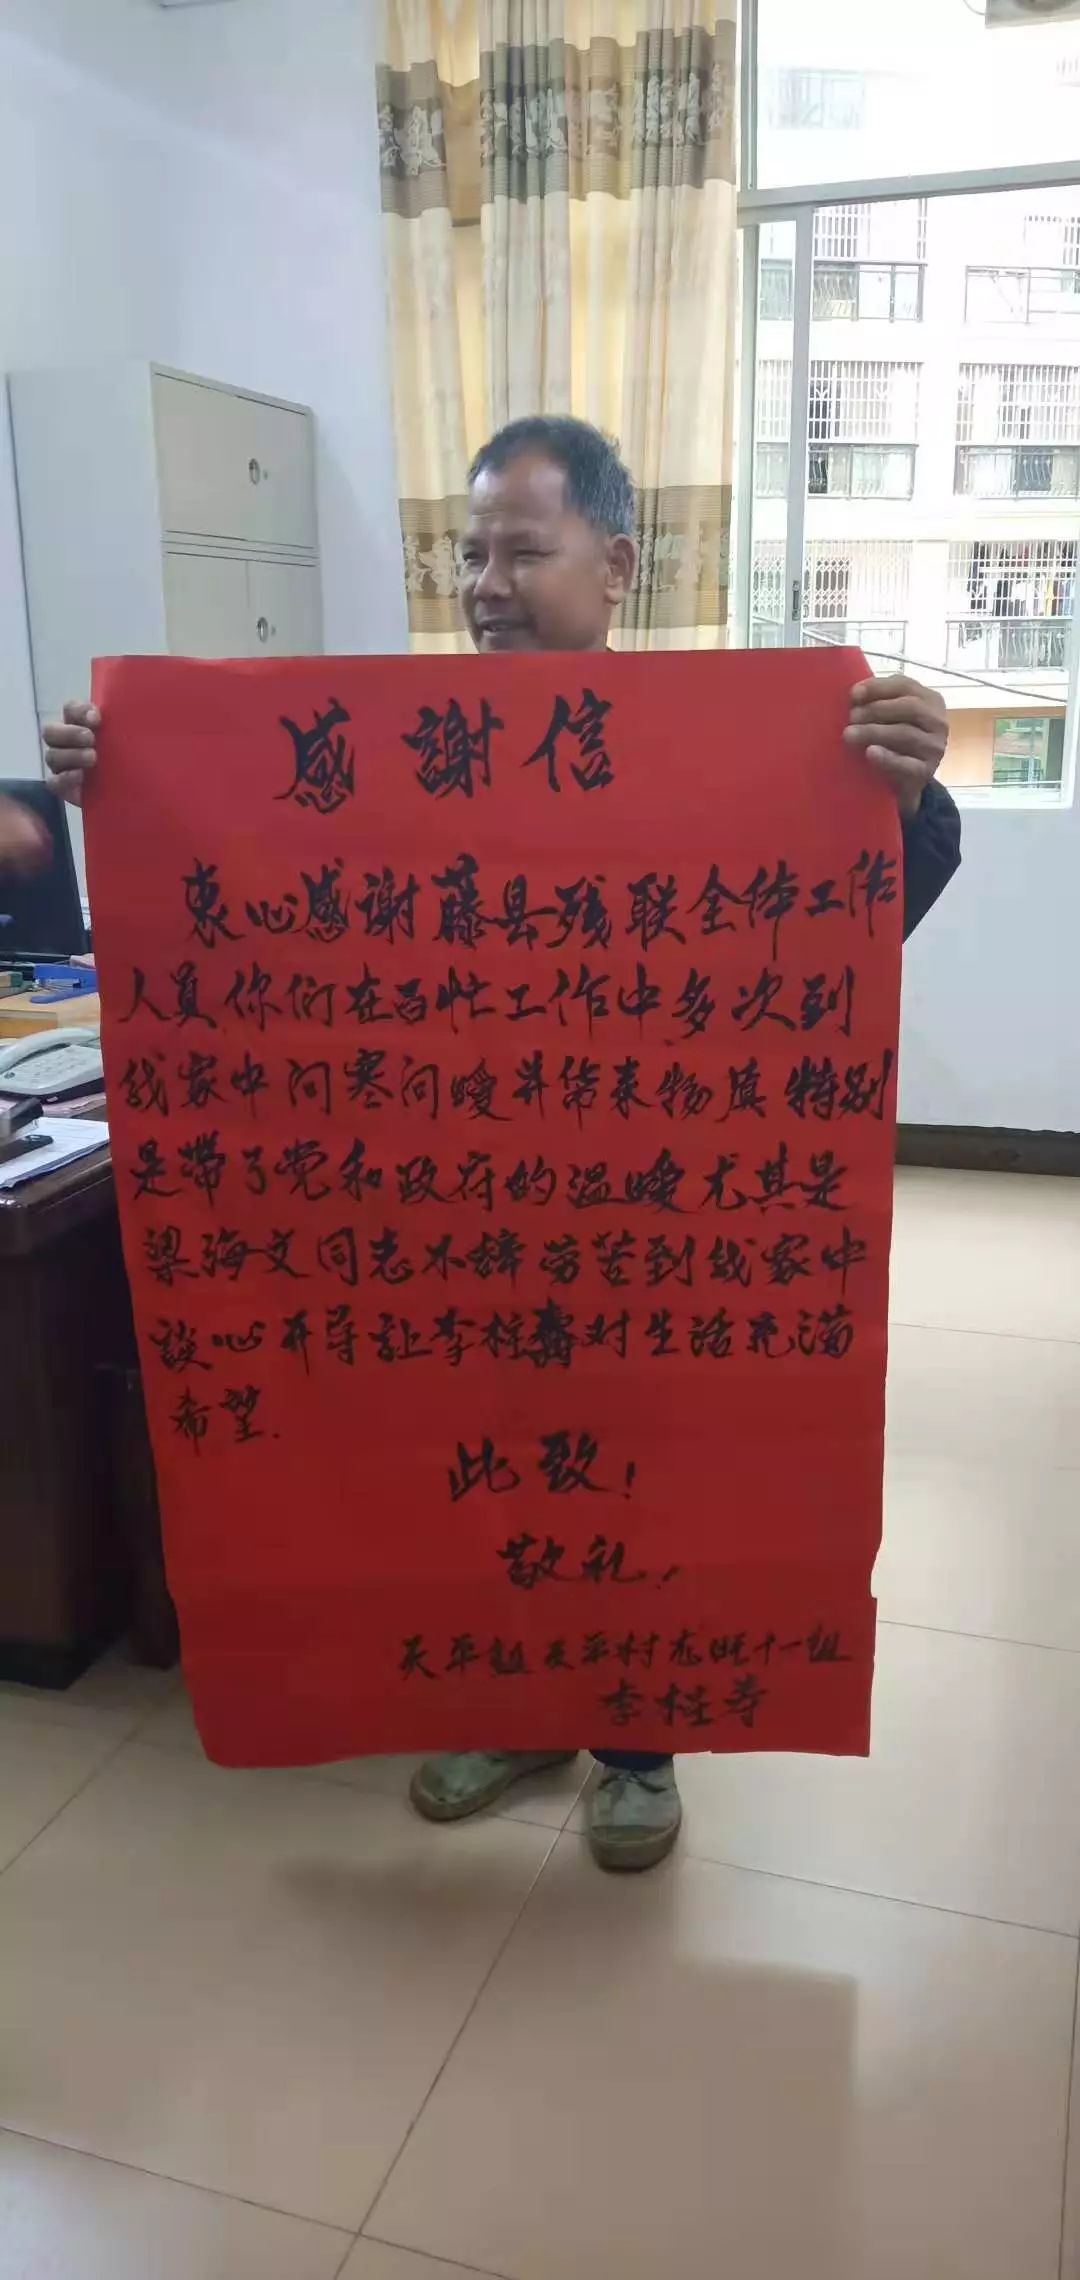 感謝信
衷心感谢藤县残联全体工作
人员你们在百忙工作中多次到
我家中问寒问暖并带来物资特别
是带了党和政府的温暖尤其是
梁海文同志不辞劳苦到我家中
談心开导让李桂壽对生活充满
希望.
此致!
敬礼!
天平村十一组
李桂寿